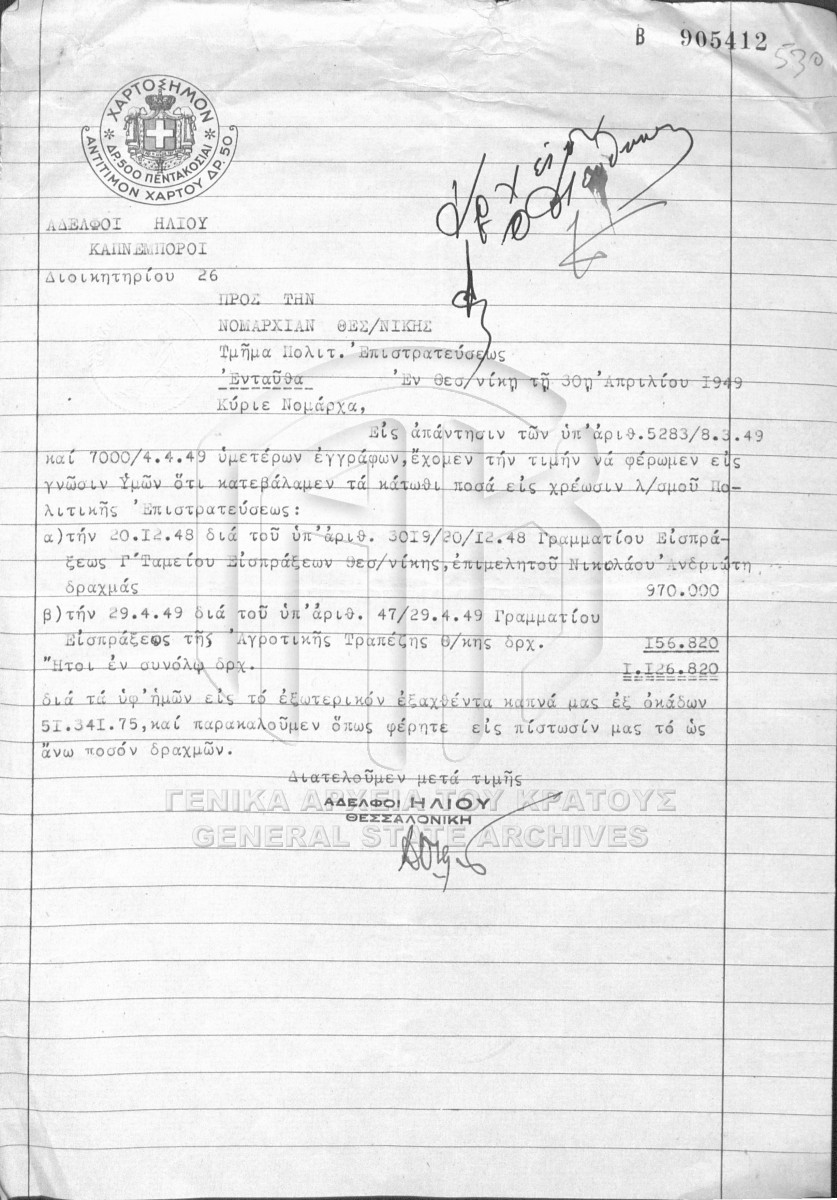 Β 905412
530
ΧΑΡΤΟΣΗΜΟΝ
ΔΡ. 500 ΠΕΝΤΑΚΟΣΙΑΙ
ΑΝΤΙΤΙΜΟΝ ΧΑΡΤΟΥ ΔΡ. 50
ΑΔΕΛΦΟΙ ΗΛΙΟΥ
ΚΑΠΝΕΜΠΟΡΟΙ
Διοικητηρίου 26
ΠΡΟΣ ΤΗΝ
ΝΟΜΑΡΧΙΑΝ ΘΕΣ/ΝΙΚΗΣ
Τμῆμα Πολιτ.'Επιστρατεύσεως
'Ενταῦθα 'Εν Θεσ/νίκῃ τῇ 30ῃ 'Απριλίου 1949
Κύριε Νομάρχα,
Εἰς ἀπάντησιν τῶν ὑπ'ἀριθ.5283/8.3.49
καί 7000/4.4.49 ὑμετέρων ἐγγράφων,ἔχομεν τήν τιμήν νά φέρωμεν εἰς
γνῶσιν Ὑμῶν ὅτι κατεβάλαμεν τά κάτωθι ποσά εἰς χρέωσιν λ/σμοῦ Πο-
λιτικῆς 'Επιστρατεύσεως:
α)τήν 20.12.48 διά τοῦ ὑπ'ἀριθ. 3019/20/12.48 Γραμματίου Εἰσπρά-
ξεως Γ'Ταμείου Εἰσπράξεων Θεσ/νίκης,ἐπιμελητοῦ Νικολάου 'Ανδριώτη
δραχμάς 970.000
β)τήν 29.4.49 διά τοῦ ὑπ'ἀριθ. 47/29.4.49 Γραμματίου
Εἰσπράξεως τῆς 'Αγροτικῆς Τραπέζης Θ/κης δρχ. 156.820
Ἤτοι ἐν συνόλῳ δρχ. 1.126.820
διά τά ὑφ'ἡμῶν εἰς τό ἐξωτερικόν ἐξαχθέντα καπνά μας ἐξ ὀκάδων
51.341.75,καί παρακαλοῦμεν ὅπως φέρητε εἰς πίστωσίν μας τό ὡς
ἄνω ποσόν δραχμῶν.
Διατελοῦμεν μετά τιμῆς
ΑΔΕΛΦΟΙ ΗΛΙΟΥ
ΘΕΣΣΑΛΟΝΙΚΗ
ΓΕΝΙΚΑ ΑΡΧΕΙΑ ΤΟΥ ΚΡΑΤΟΥΣ
GENERAL STATE ARCHIVES